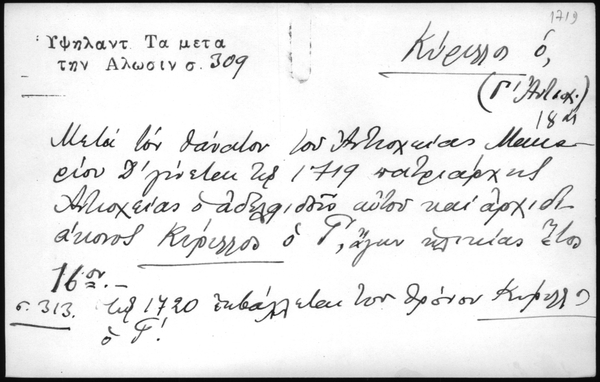 1719
Ὑψηλαντ. Τα μετα
την Αλωσιν σ. 309
Κύριλλος ὁ,
(Γ' Ἀντιοχ.
18
Μετὰ τὸν θάνατον τοῦ Ἀντιοχείας Μακα-
ρίου Δ' γίνεται τῷ 1719 πατριάρχης
Ἀντιοχείας ὁ ἀδελφιδοῦς αὐτοῦ καὶ ἀρχιδι-
άκονος Κύριλλος ὁ Γ', ἄγων ἡλικίας ἔτος
16ον.—
σ. 313. τῷ 1720 ἐκβάλλεται τοῦ θρόνου Κύριλλος
ὁ Γ'.